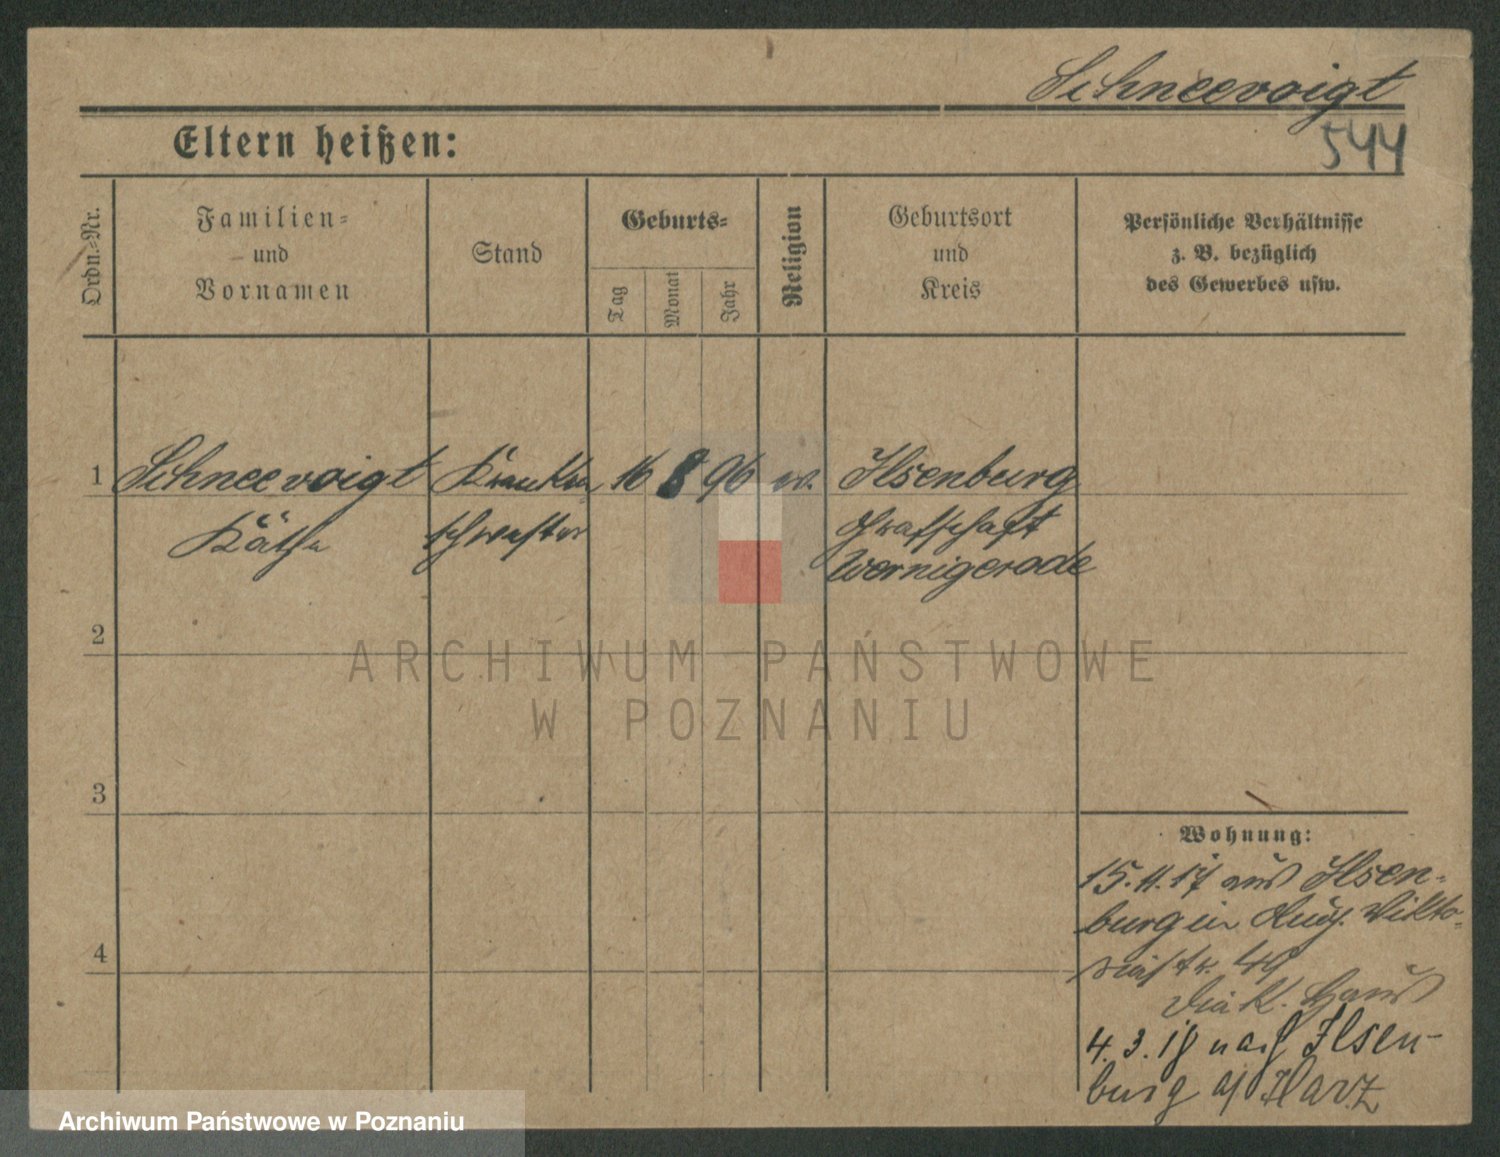 Schneevoigt
544
Eltern heißen:
Ordn.-Nr.
Familien-
und
Vornamen
Stand
Geburts-
Tag
Monat
Jahr
Religion
Geburtsort
und
Kreis
Persönliche Verhältnisse
z. B. bezüglich
des Gewerbes usw.
1 Schneevoigt Kranken 16 8 96 ev. Ilsenburg
Käthe schwester Grafschaft
Wernigerode
2
3
4
Wohnung:
15.11.17 aus Ilsen-
burg in Aug. Vikto-
riastr. 49
Diak. Haus
4.3.18 nach Ilsen-
burg a/Harz
ARCHIWUM PAŃSTWOWE
W POZNANIU
Archiwum Państwowe w Poznaniu